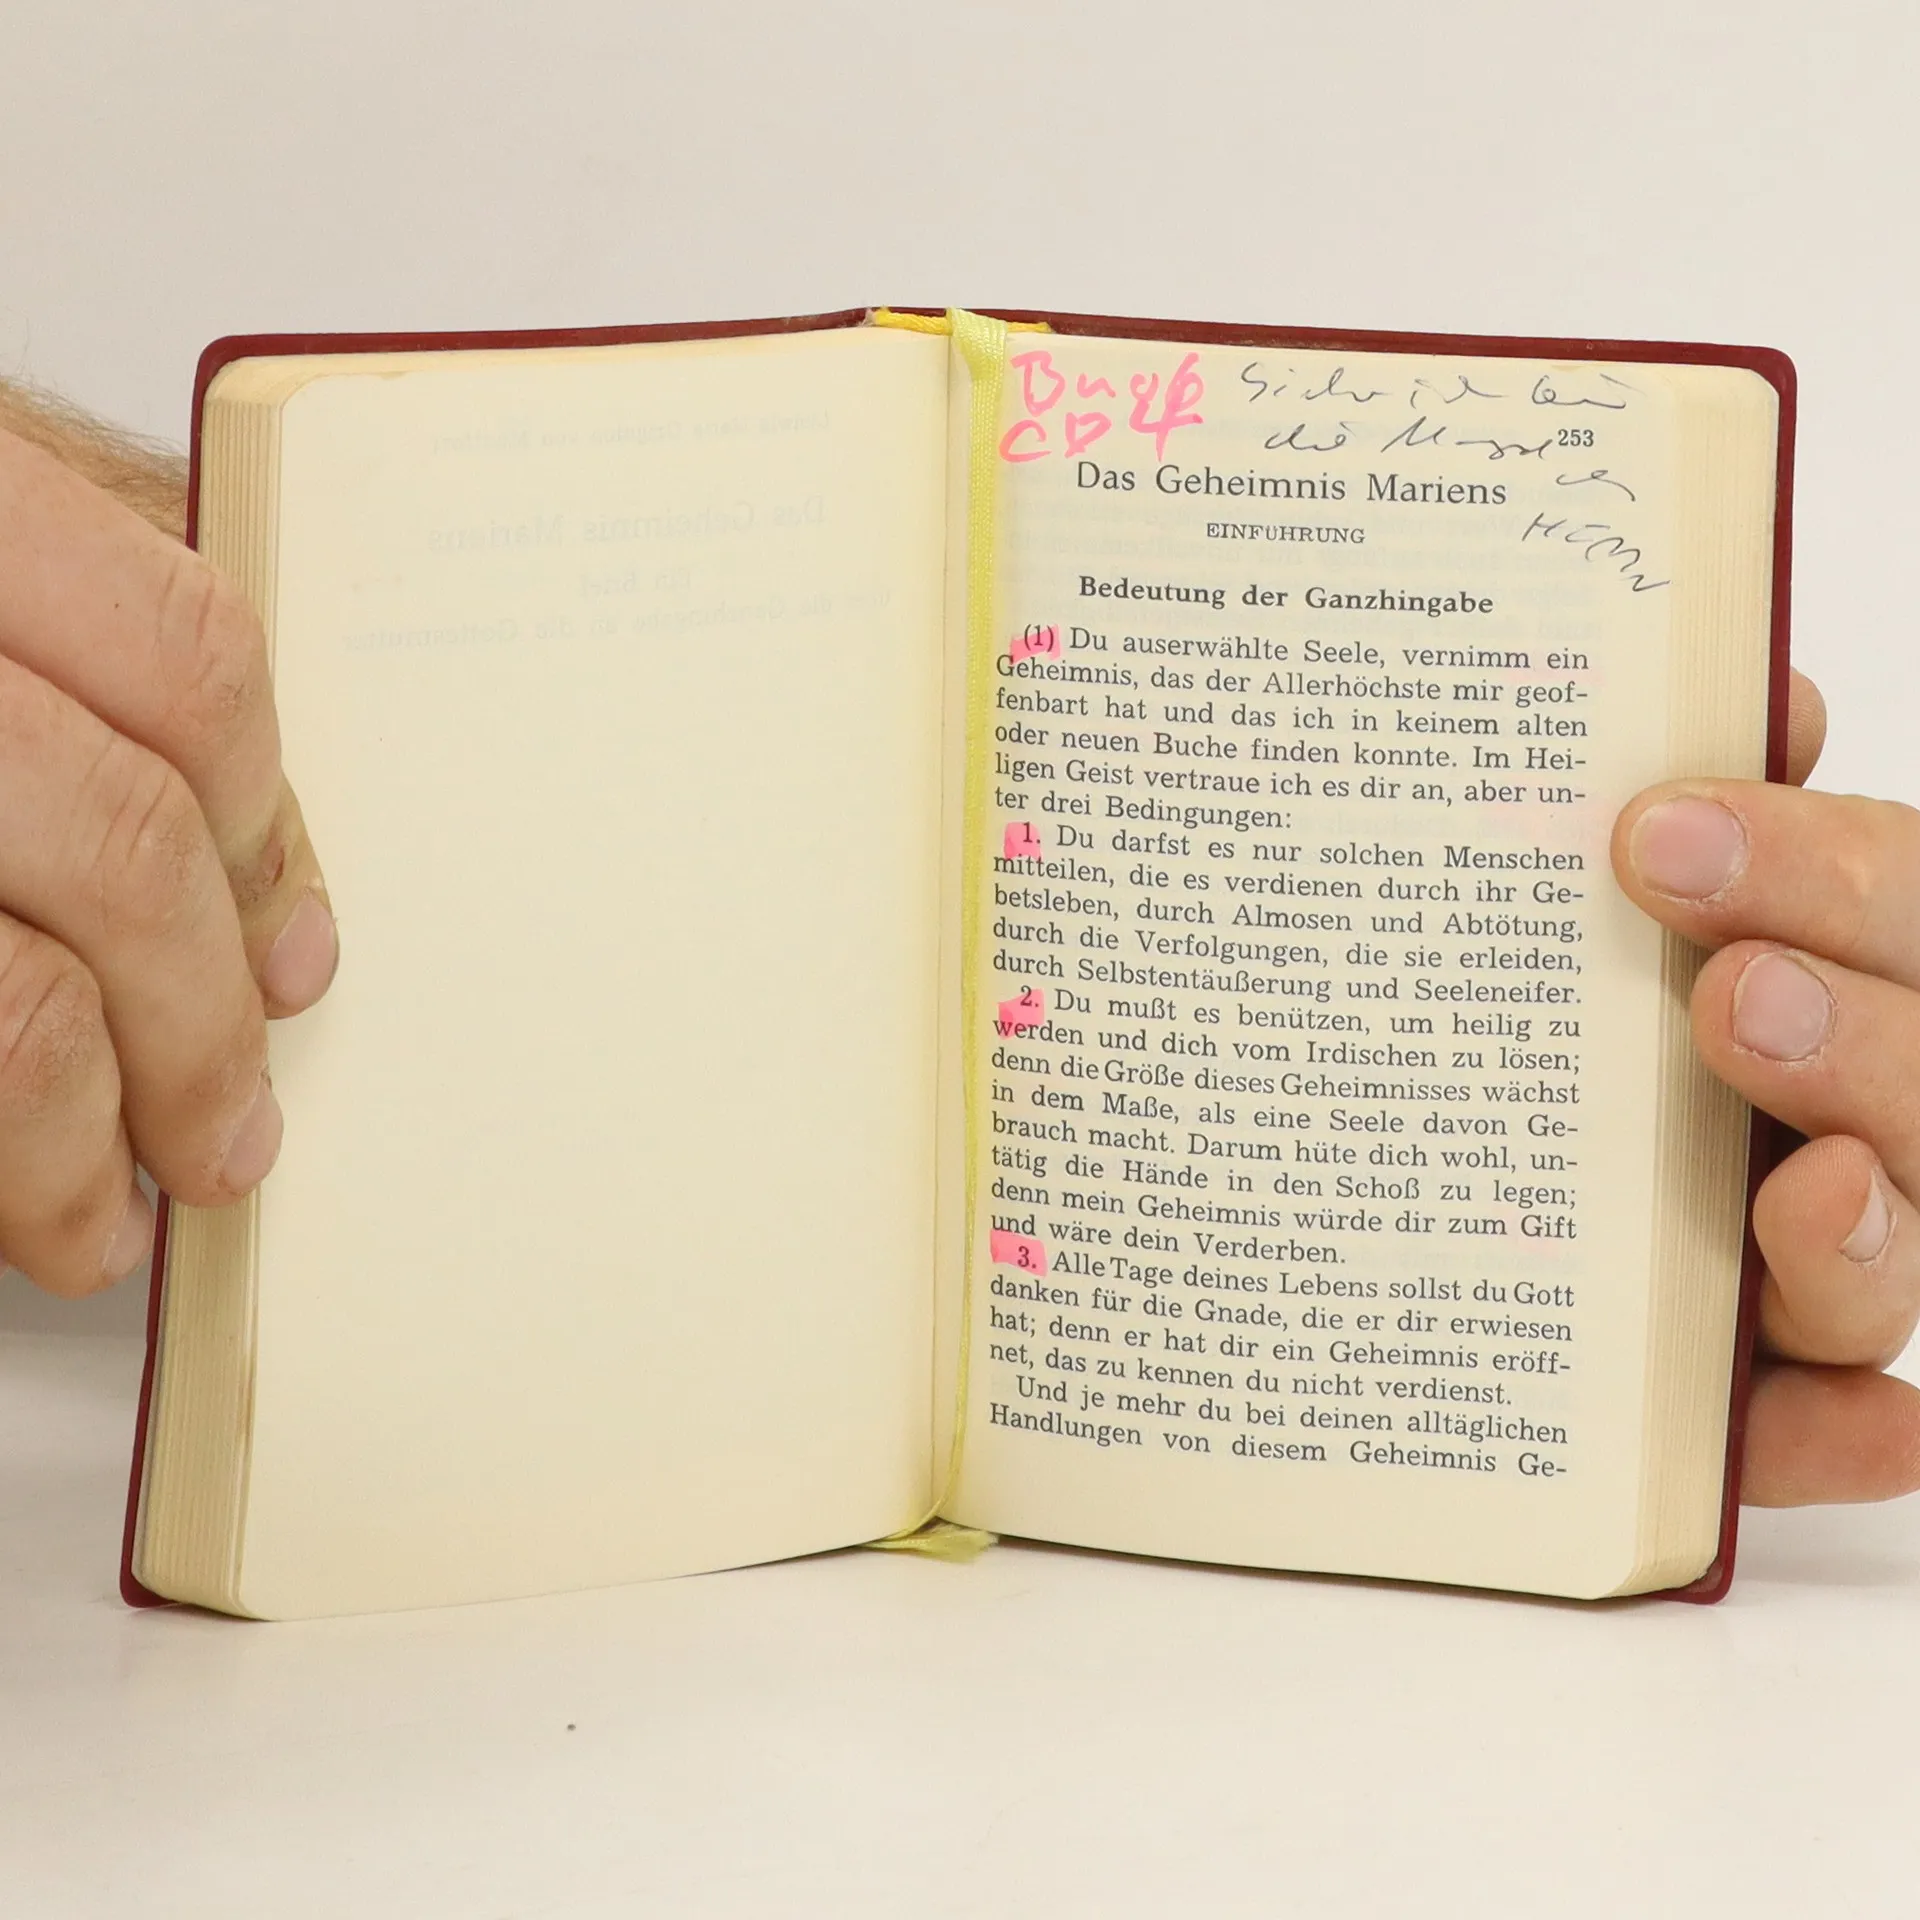 253
Das Geheimnis Mariens
EINFÜHRUNG
Bedeutung der Ganzhingabe
(1) Du auserwählte Seele, vernimm ein
Geheimnis, das der Allerhöchste mir geof-
fenbart hat und das ich in keinem alten
oder neuen Buche finden konnte. Im Hei-
ligen Geist vertraue ich es dir an, aber un-
ter drei Bedingungen:
1. Du darfst es nur solchen Menschen
mitteilen, die es verdienen durch ihr Ge-
betsleben, durch Almosen und Abtötung,
durch die Verfolgungen, die sie erleiden,
durch Selbstentäußerung und Seeleneifer.
2. Du mußt es benützen, um heilig zu
werden und dich vom Irdischen zu lösen;
denn die Größe dieses Geheimnisses wächst
in dem Maße, als eine Seele davon Ge-
brauch macht. Darum hüte dich wohl, un-
tätig die Hände in den Schoß zu legen;
denn mein Geheimnis würde dir zum Gift
und wäre dein Verderben.
3. Alle Tage deines Lebens sollst du Gott
danken für die Gnade, die er dir erwiesen
hat; denn er hat dir ein Geheimnis eröff-
net, das zu kennen du nicht verdienst.
Und je mehr du bei deinen alltäglichen
Handlungen von diesem Geheimnis Ge-